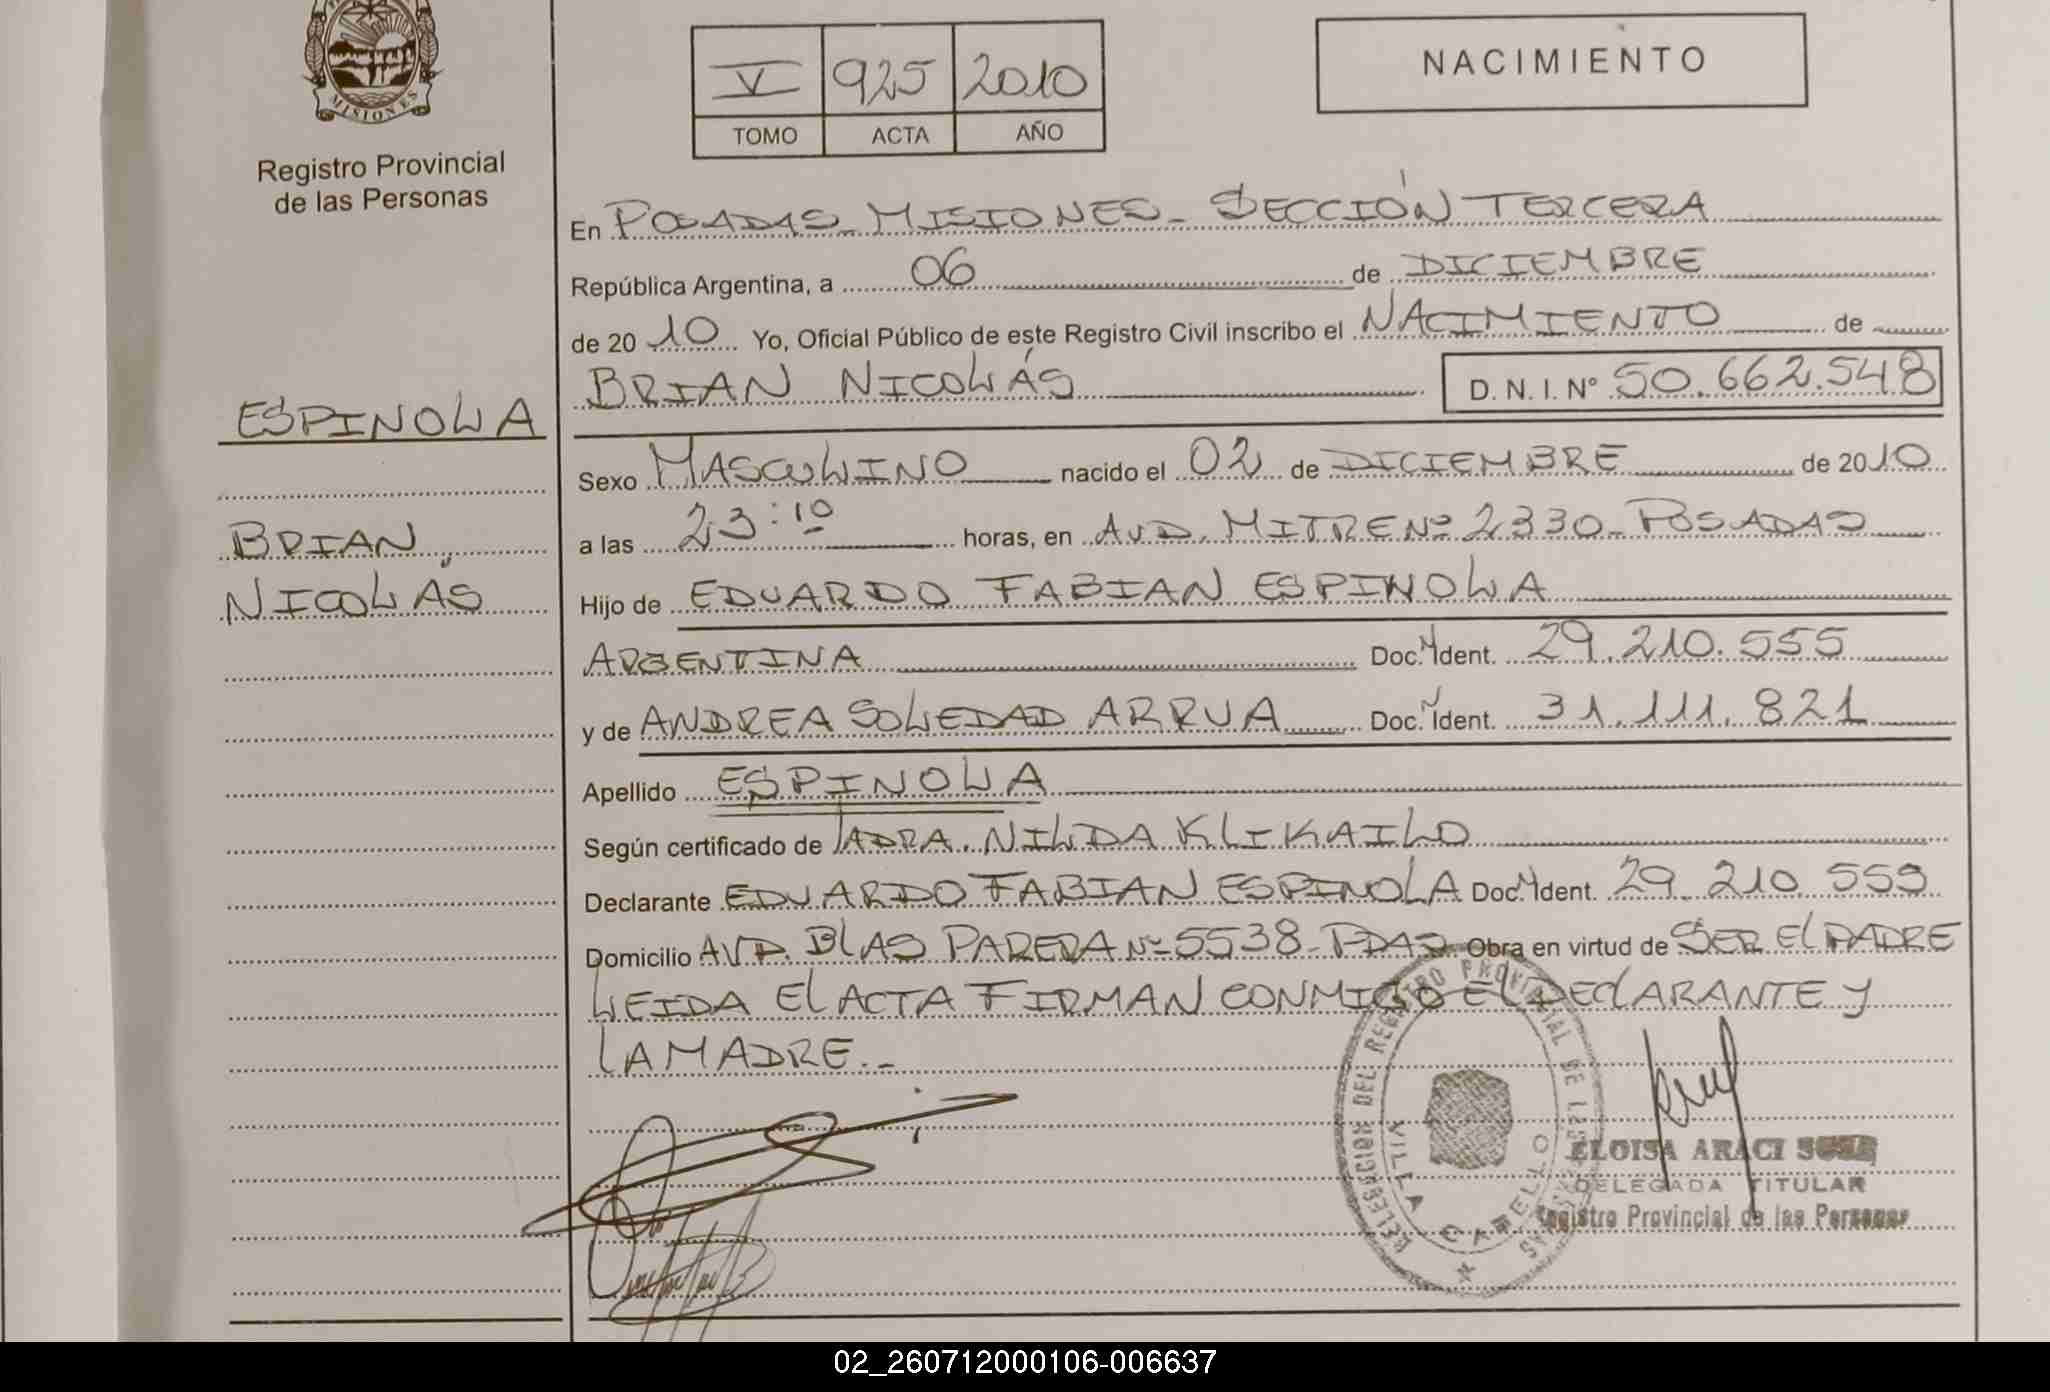 MISIONES
Registro Provincial
de las Personas
V 925 2010
TOMO ACTA AÑO
NACIMIENTO
En POSADAS - MISIONES - SECCIÓN TERCERA
República Argentina, a 06 de DICIEMBRE
de 2010 Yo, Oficial Público de este Registro Civil inscribo el NACIMIENTO de
BRIAN NICOLÁS D. N. I. Nº 50.662.548
ESPINOLA
BRIAN
NICOLÁS
Sexo MASCULINO nacido el 02 de DICIEMBRE de 2010
a las 23:10 horas, en AVD. MITRE Nº 2330 - POSADAS
Hijo de EDUARDO FABIAN ESPINOLA
ARGENTINA Doc. Ident. 29.210.555
y de ANDREA SOLEDAD ARRUA Doc. Ident. 31.111.821
Apellido ESPINOLA
Según certificado de LADRA. NILDA KLIKAILO
Declarante EDUARDO FABIAN ESPINOLA Doc. Ident. 29.210.555
Domicilio AVD. BLAS PARERA Nº 5538 - PDAS Obra en virtud de SER EL PADRE
LEIDA EL ACTA FIRMAN CONMIGO EL DECLARANTE Y
LA MADRE.-
DELEGACION DEL REGISTRO PROVINCIAL DE LAS
VILLA CABELLO
ELOISA ARACI
DELEGADA TITULAR
Registro Provincial de las Personas
02_260712000106-006637